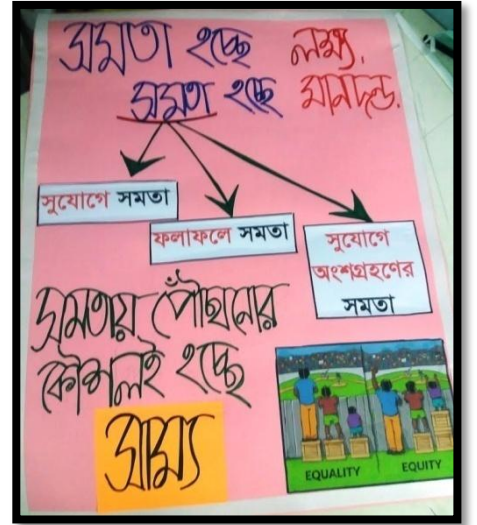 সমতা হচ্ছে লক্ষ্য,
সমতা হচ্ছে মানদন্ড.
সুযোগে সমতা
ফলাফলে সমতা
সুযোগে
অংশগ্রহণের
সমতা
সমতায় পৌঁছানোর
কৌশলই হচ্ছে
সাম্য
EQUALITY
EQUITY